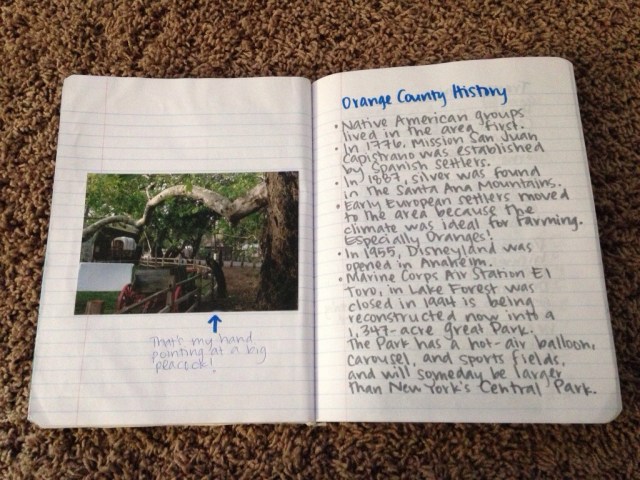 That's my hand
pointing at a big
peacock!
Orange County History
• Native American groups
lived in the area first.
• In 1776, Mission San Juan
Capistrano was established
by Spanish settlers.
• In 1887, silver was found
in the Santa Ana Mountains.
• Early European settlers moved
to the area because the
climate was ideal for farming.
Especially Oranges!
• In 1955, Disneyland was
opened in Anaheim.
• Marine Corps Air Station El
Toro, in Lake Forest was
closed in 1994 is being
reconstructed now into a
1,347-acre great Park.
The Park has a hot-air balloon,
carousel, and sports fields,
and will someday be larger
than New York's Central Park.